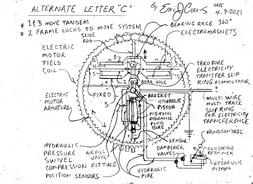 ALTERNATE LETTER "C"
4-7-2021
1 & 3 MOVE TANDEM
2 FRAME LOCKS TO MOVE SYSTEM
SLIDE
ROD
BEARING RACE 360°
ELECTROMAGNETS
ELECTRIC
MOTOR
FIELD
COIL
THRU BORE
ELECTRICITY
TRANSFER SLIP
RING
BORE HOLE
FIXED
ELECTRIC
MOTOR
ARMATURE
BRACKET
HYDRAULIC
PISTON
MULTI WIRE
MULTI TRACE
SLIP RING
FOR ELECTRICITY
TRANSFERENCE
HYDRAULIC
PRESSURE
SWIVEL
COMPRESSION FITTING
POSITION SENSORS
AIR FILL
VALVE
SENSOR
DAMPENER
VALVES
HYDRAULIC
PIPE
HYDRAULIC
PISTON